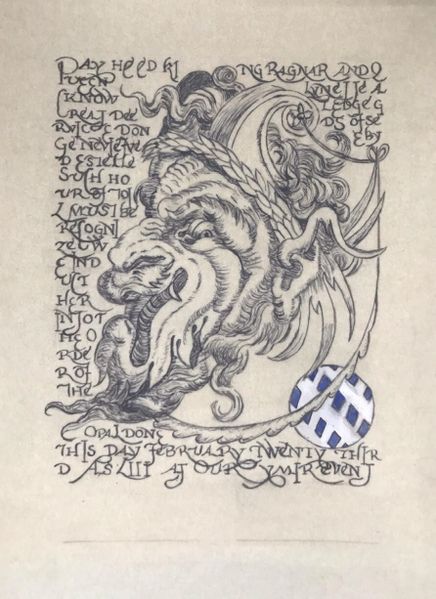 PAY HEED KING RAGNAR AND Q
UEEN LYNETTE A
CKNOWLEDGE G
REAT DEEDS OF SE
RVICES DONE BY
GENEVIEVE
D ESTELLE
SUCH HO
UR OF TOI
L MUST BE
RECOGNI
ZE W
E IND
UCT
HER
INTO T
HE O
RDE
R OF
THE
OPAL DONE
THIS DAY FEBRUARY TWENTY THIR
D AS LIII AT OUR YMIR EVENT